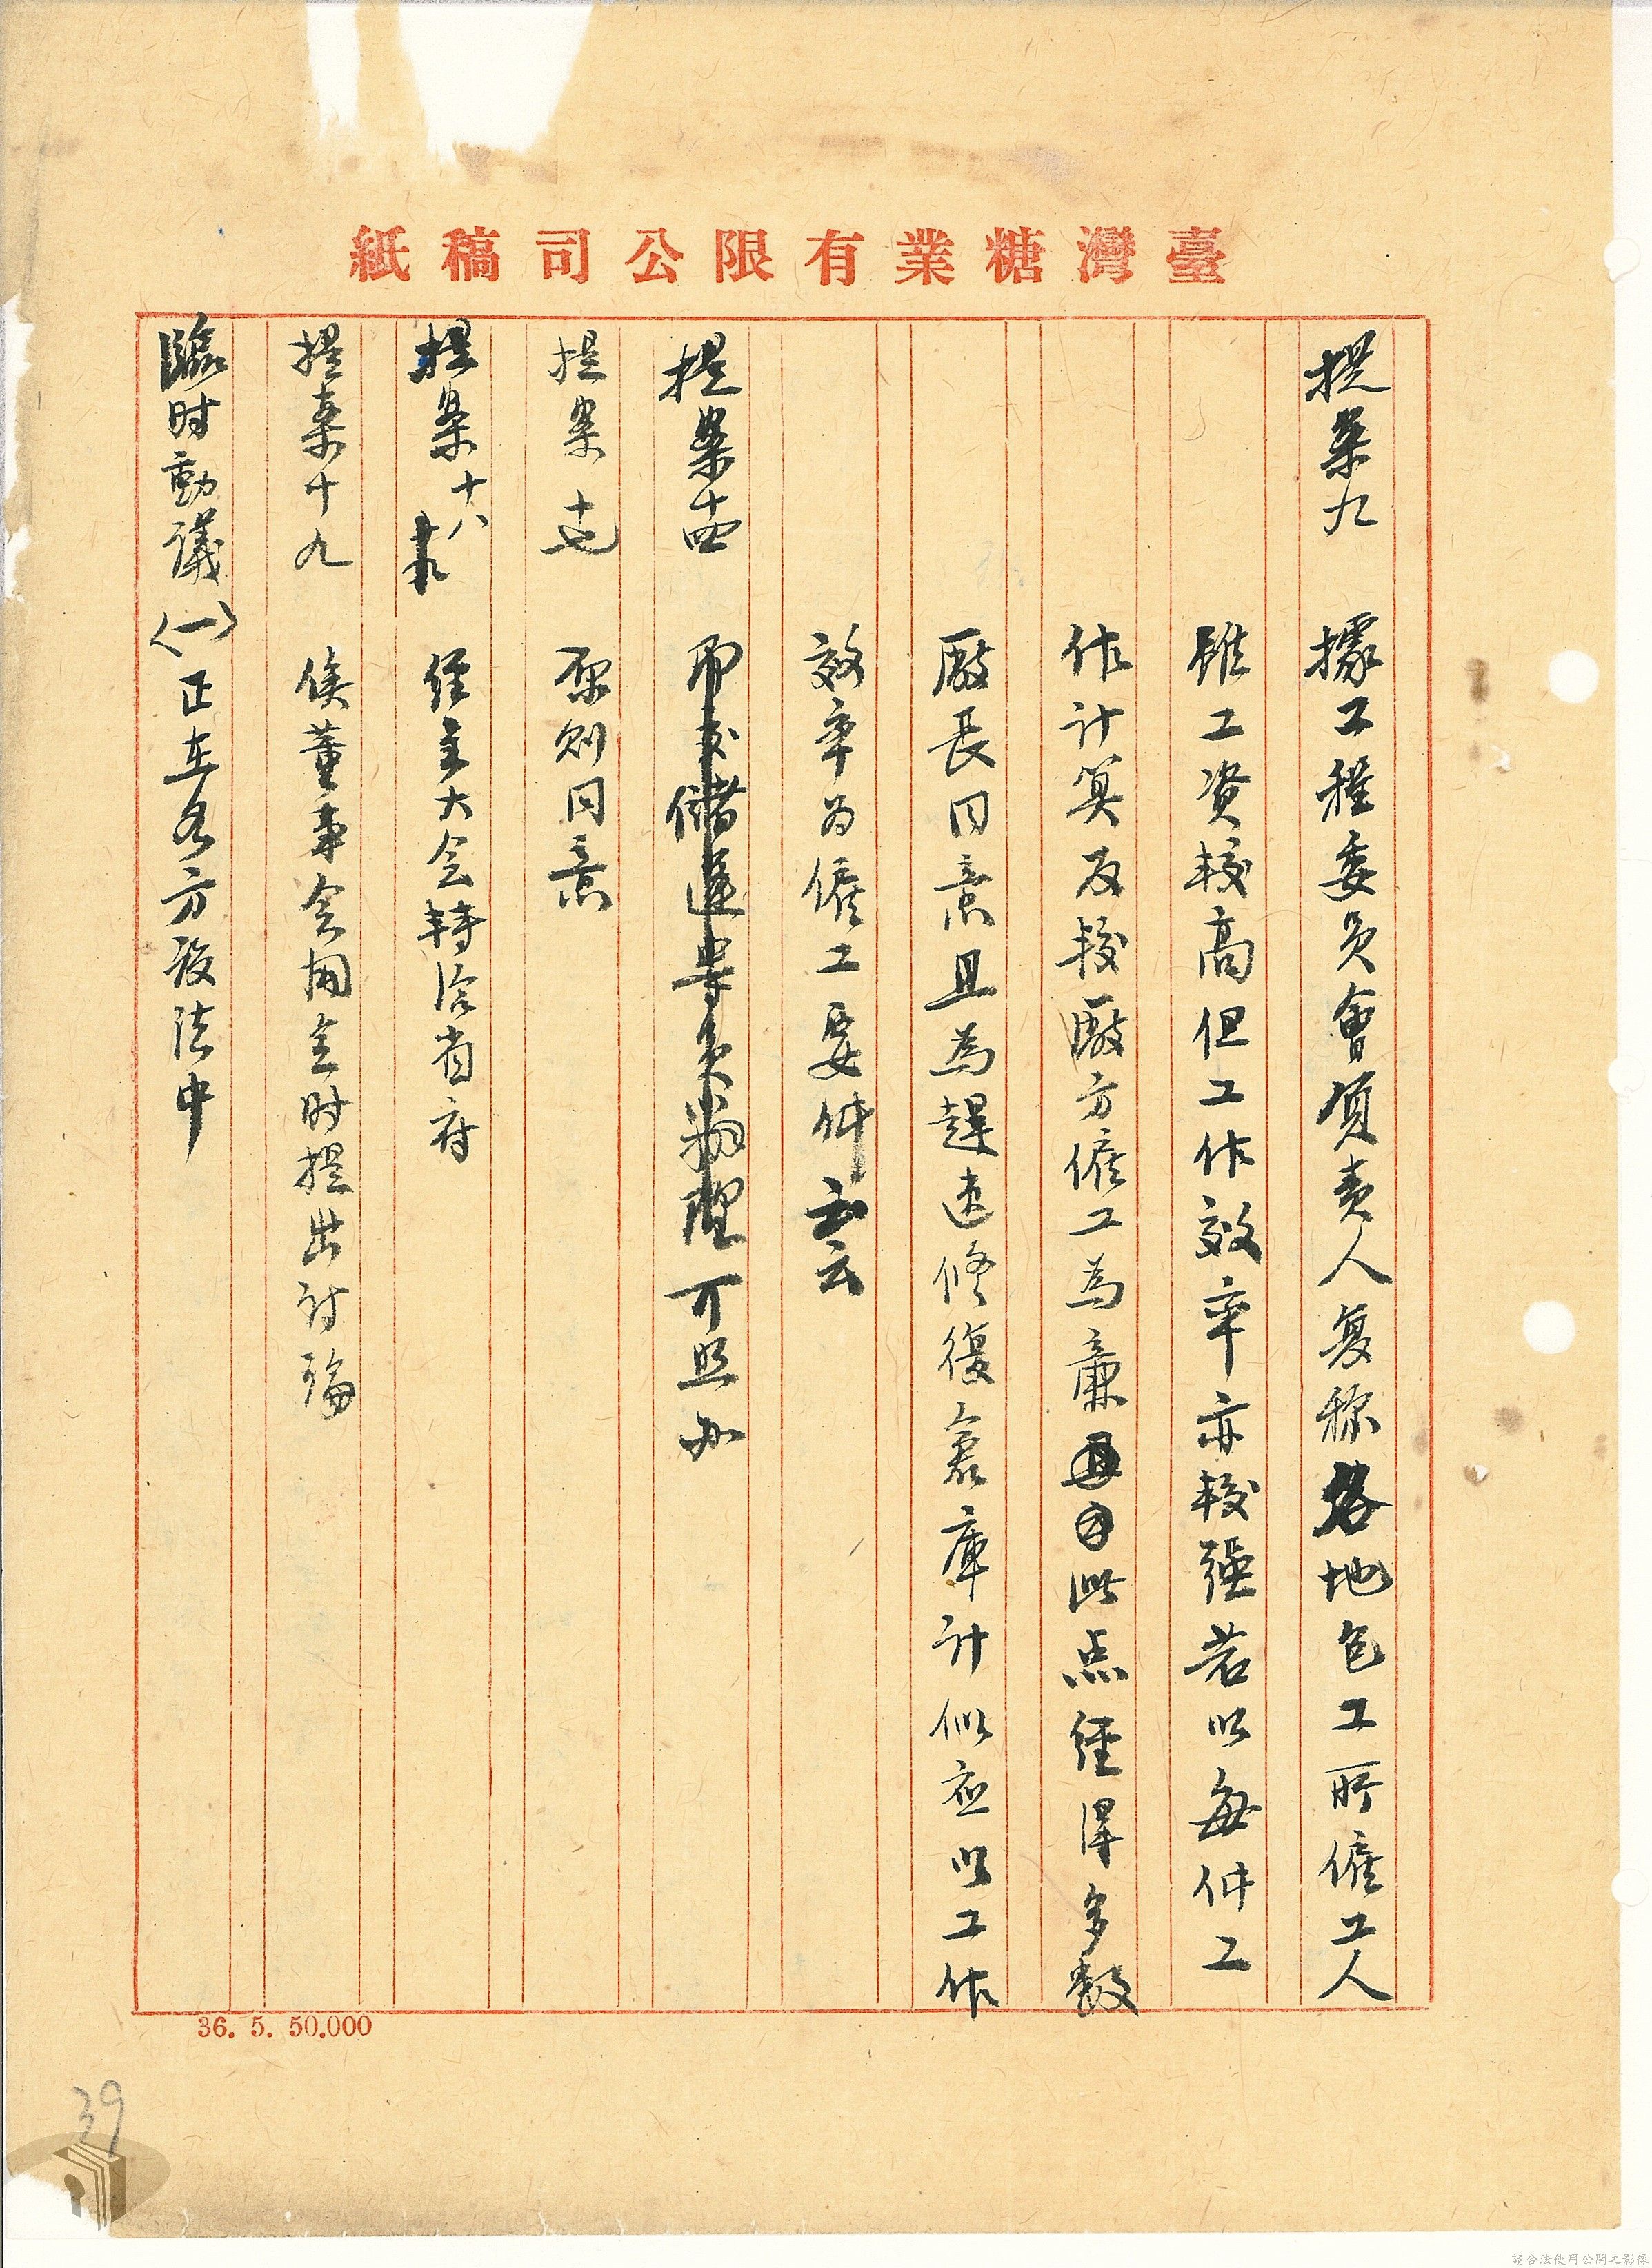 臺灣糖業有限公司稿紙
提案九 據工程委員會負責人复称各地包工所僱工人
雖工資較高但工作效率亦較强若以每件工
作計算反較廠方僱工為廉此点經得多数
廠長同意且為趕速修復倉庫計似应以工作
效率为僱工要件云云
提案十四 可照办
提案十七 原则同意
提案十八 經主大会轉洽省府
提案十九 俟董事会開会时提出討論
臨时動議〈一〉正在各方設法中
36. 5. 50.000
39
請合法使用公開之影像